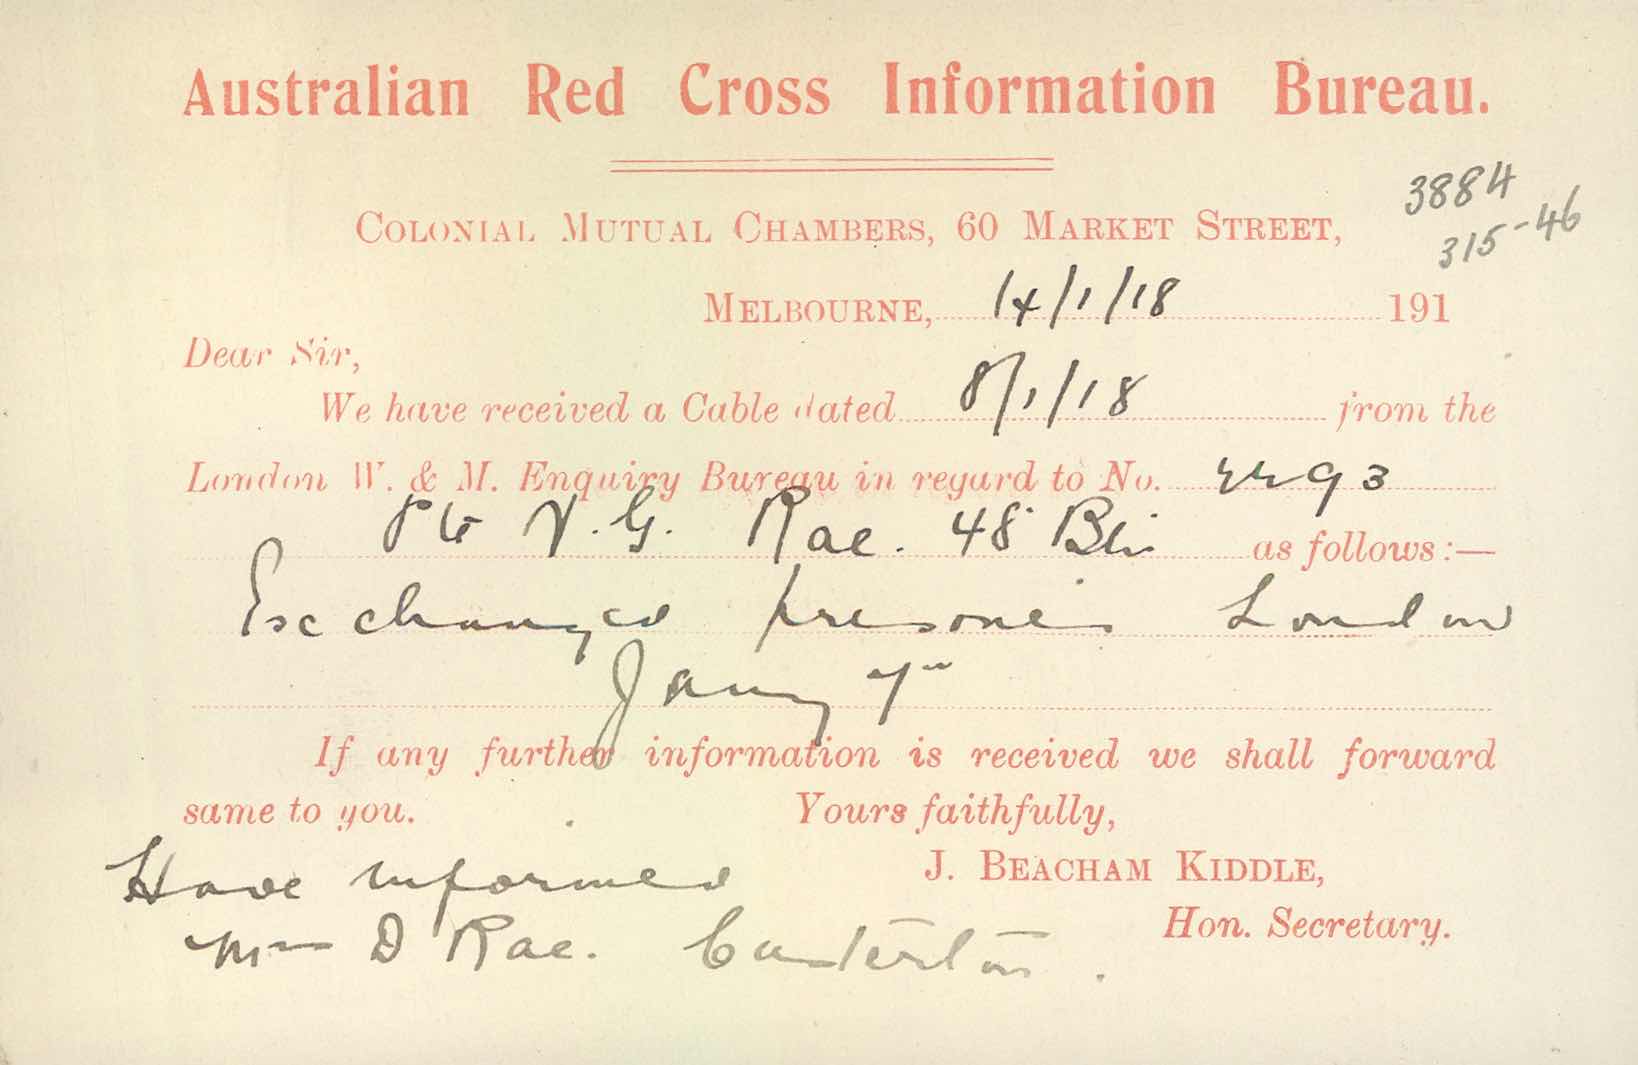 Australian Red Cross Information Bureau.
3884
315-46
COLONIAL MUTUAL CHAMBERS, 60 MARKET STREET,
MELBOURNE, 14/1/18 191
Dear Sir,
We have received a Cable dated 8/1/18 from the
London W. & M. Enquiry Bureau in regard to No. 2293
Pte N. G. Rae. 48 Btn as follows:—
Exchanged prisoner London
Jany 7th
If any further information is received we shall forward
same to you. Yours faithfully,
J. BEACHAM KIDDLE,
Hon. Secretary.
Have informed
Mrs D Rae. Casterton.